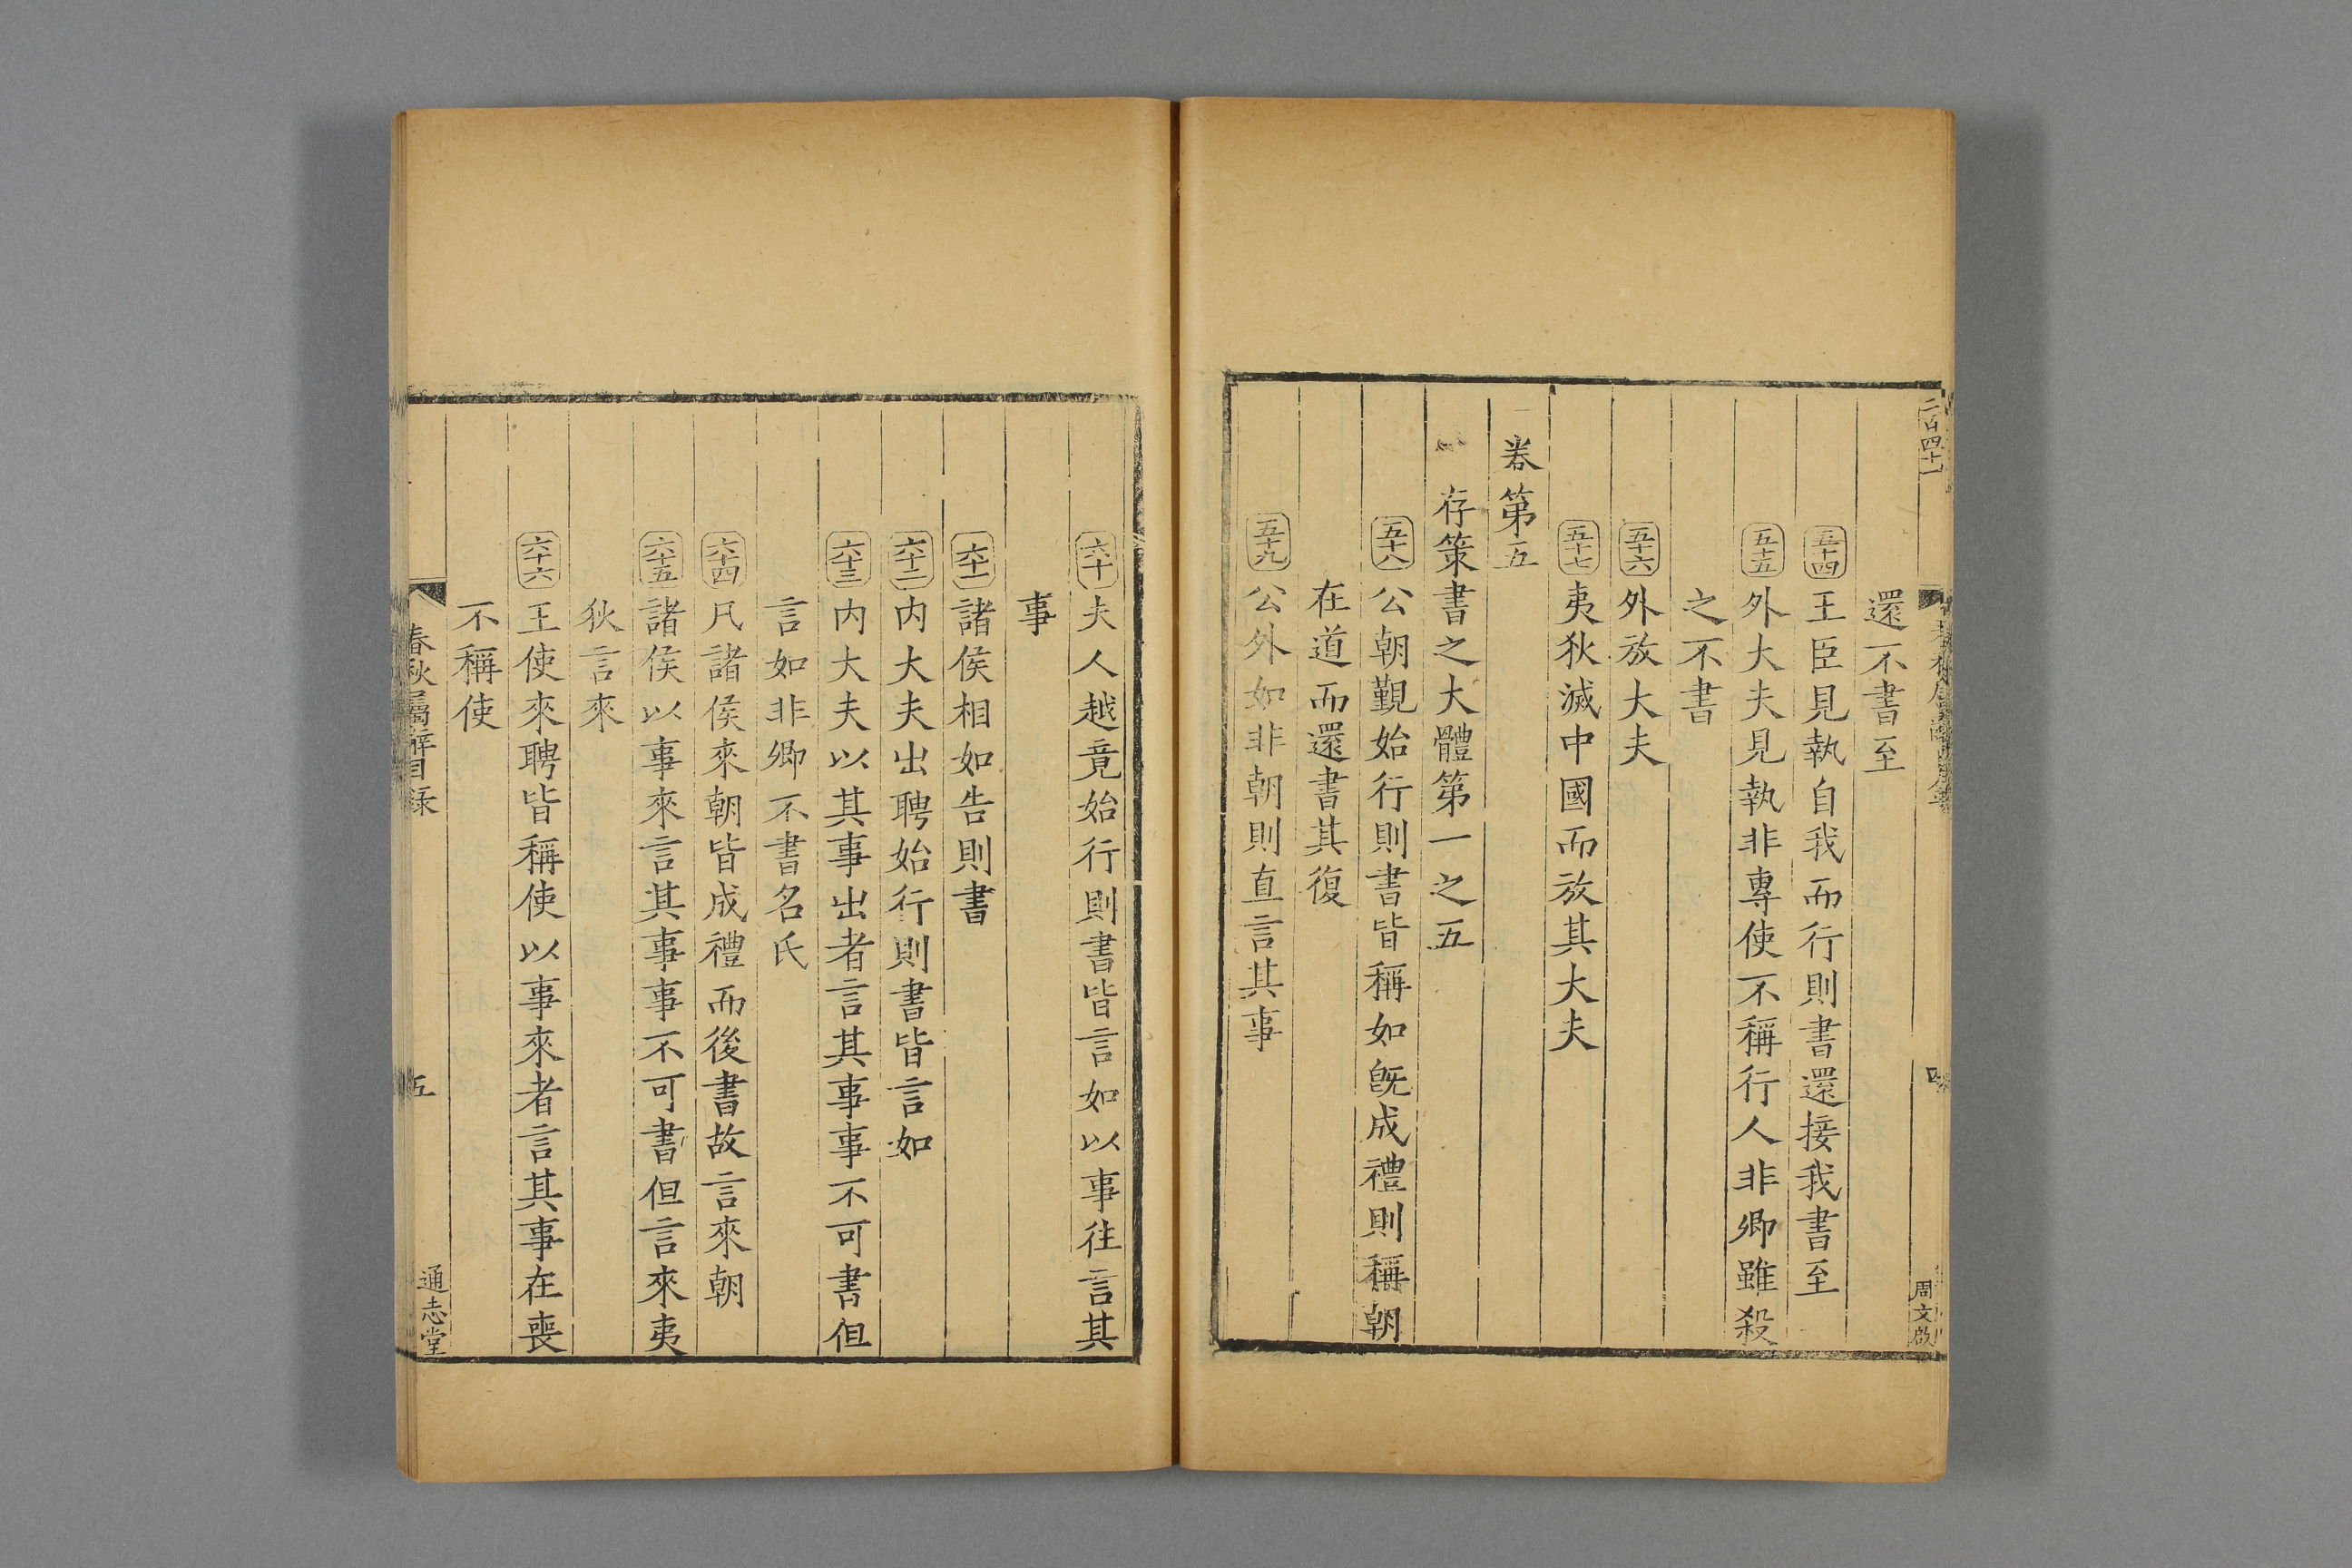 二百四十一
四
周文啟
還不書至
五十四 王臣見執自我而行則書還接我書至
五十五 外大夫見執非專使不稱行人非卿雖殺
之不書
五十六 外放大夫
五十七 夷狄滅中國而放其大夫
卷第五
存策書之大體第一之五
五十八 公朝覲始行則書皆稱如旣成禮則稱朝
在道而還書其復
五十九 公外如非朝則直言其事
六十 夫人越竟始行則書皆言如以事往言其
事
六十一 諸侯相如告則書
六十二 内大夫出聘始行則書皆言如
六十三 内大夫以其事出者言其事事不可書但
言如非卿不書名氏
六十四 凡諸侯來朝皆成禮而後書故言來朝
六十五 諸侯以事來言其事事不可書但言來夷
狄言來
六十六 王使來聘皆稱使以事來者言其事在喪
不稱使
春秋屬辭目録
五
通志堂